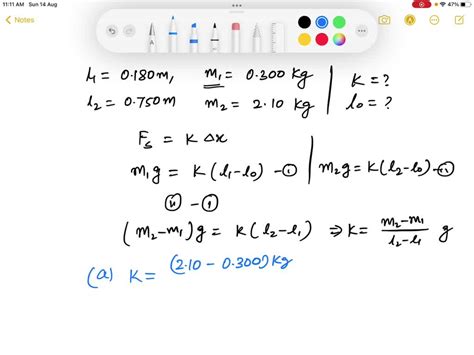 11:11 AM Sun 14 Aug
47%
Notes
l₁ = 0.180m, m₁ = 0.300 kg K = ?
l₂ = 0.750m m₂ = 2.10 kg l₀ = ?
Fₛ = K Δx
m₁g = K(l₁-l₀) -① m₂g = K(l₂-l₀) -②
② - ①
(m₂-m₁)g = K(l₂-l₁) ⇒ K = m₂-m₁ / l₂-l₁ g
(a) K = (2.10 - 0.300) kg